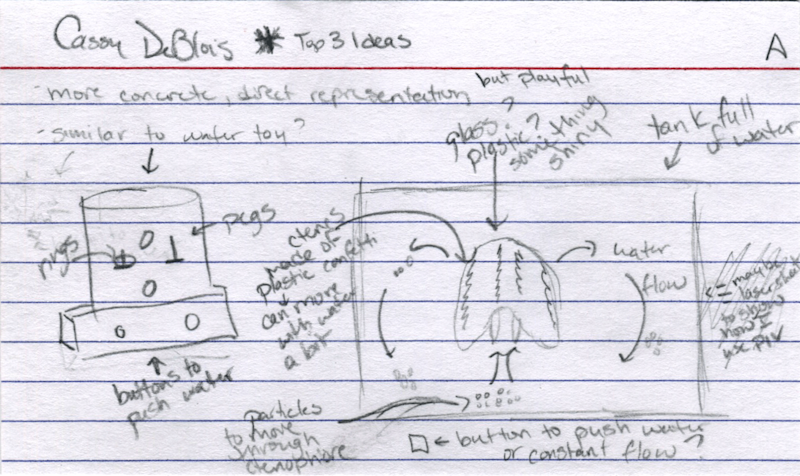 Cassy DeBlois * Top 3 Ideas
A
-more concrete, direct representation,
but playful
-similar to water toy?
glass?
plastic?
something
shiny
tank full
of water
rings
pegs
buttons to
push water
ctenes
made of
plastic confetti
can move
with water
a bit
water
flow
maybe
to show
how I
use PIV
particles
to move
through
ctenophore
button to push water
or constant flow?